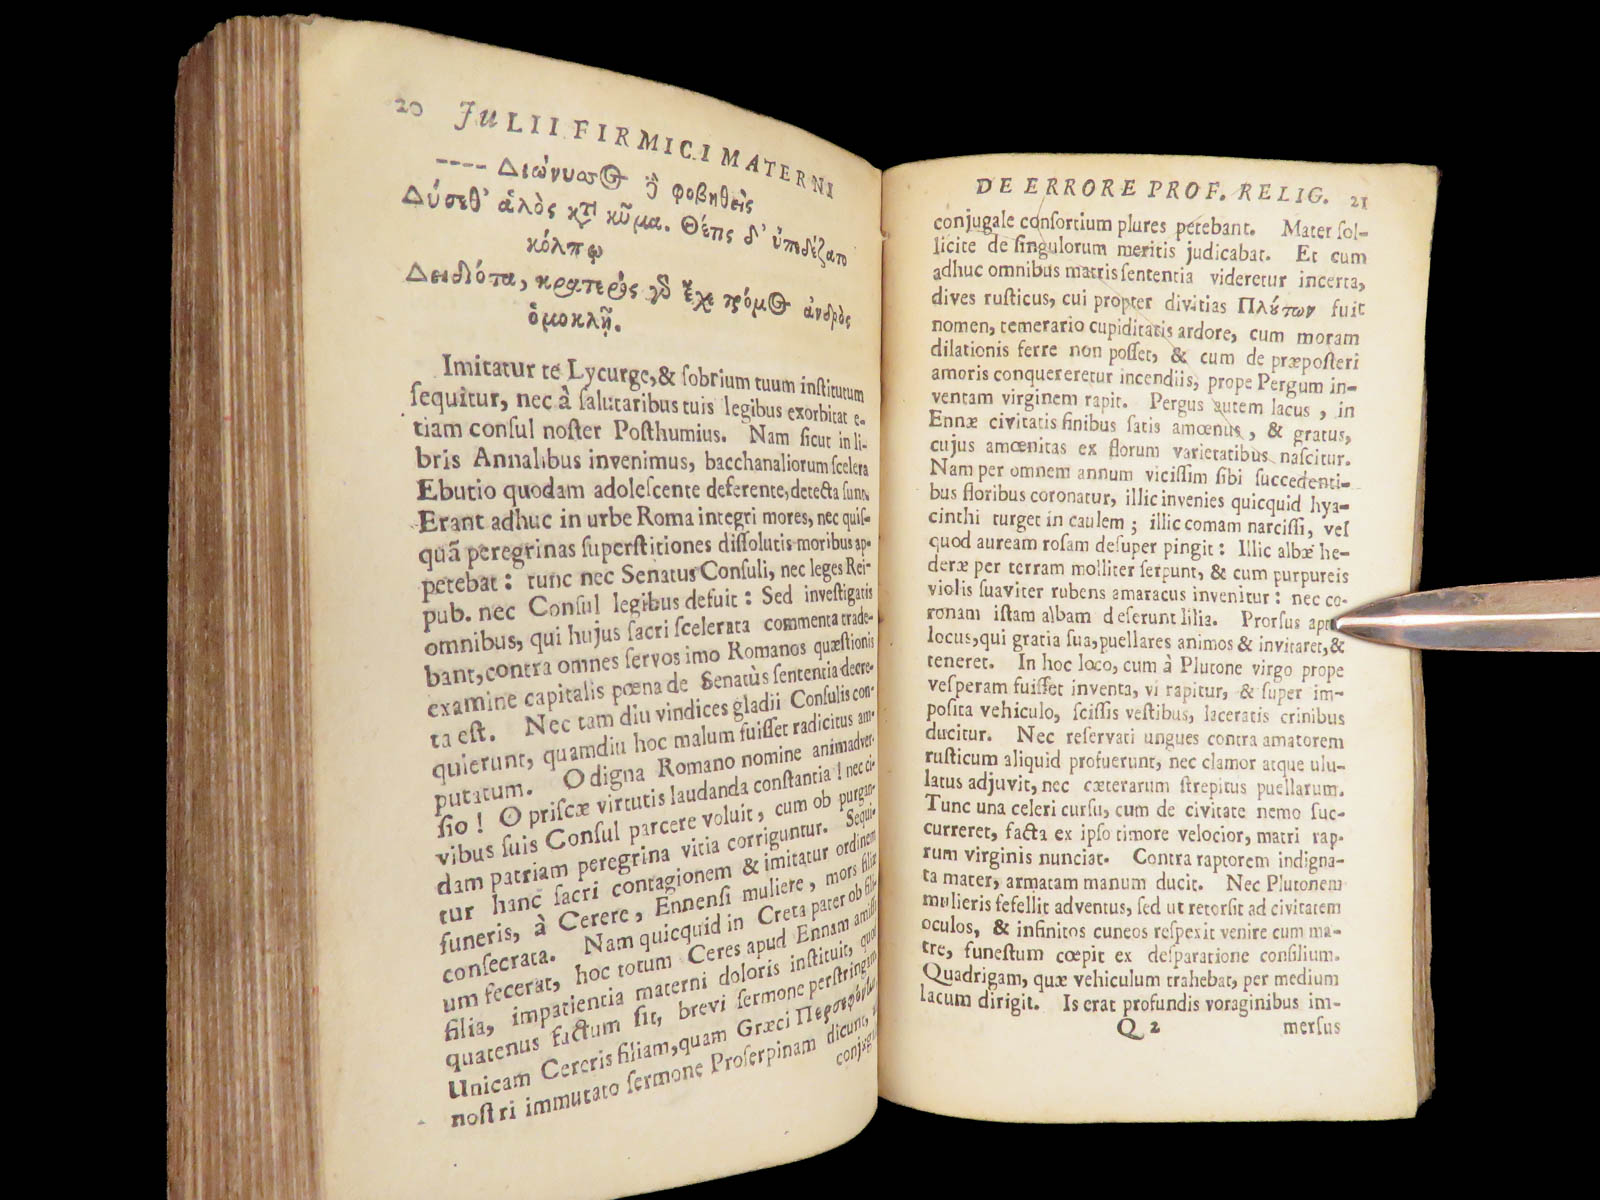 20 JULII FIRMICI MATERNI
---- Διώνυσος ϳ φοβηθεὶς
Δύσεθ' ἁλὸς κτ῀ κῦμα. Θέτις δ' ὑπεδέξατο
κόλπῳ
Δειδιότα, κρατερὸς γδ ἔχε τρόμος ἀνδρὸς
ὁμοκλῇ.
Imitatur te Lycurge, & ſobrium tuum inſtitutum
ſequitur, nec à ſalutaribus tuis legibus exorbitat e-
tiam conſul noſter Poſthumius. Nam ſicut in li-
bris Annalibus invenimus, bacchanaliorum ſcelera
Ebutio quodam adoleſcente deferente, detecta ſunt.
Erant adhuc in urbe Roma integri mores, nec quiſ-
quã peregrinas ſuperſtitiones diſſolutis moribus ap-
petebat: tunc nec Senatus Conſuli, nec leges Rei-
pub. nec Conſul legibus defuit: Sed inveſtigatis
omnibus, qui hujus ſacri ſcelerata commenta trade-
bant, contra omnes ſervos imo Romanos quæſtionis
examine capitalis pœna de Senatùs ſententia decre-
ta eſt. Nec tam diu vindices gladii Conſulis con-
quierunt, quamdiu hoc malum fuiſſet radicitus am-
putatum. O digna Romano nomine animadver-
ſio! O priſcæ virtutis laudanda conſtantia! nec ci-
vibus ſuis Conſul parcere voluit, cum ob purgan-
dam patriam peregrina vitia corriguntur. Sequi-
tur hanc ſacri contagionem & imitatur ordinem
funeris, à Cerere, Ennenſi muliere, mors filiæ
conſecrata. Nam quicquid in Creta pater ob fili-
um fecerat, hoc totum Ceres apud Ennam amiſſa
filia, impatientia materni doloris inſtituit, quod
quatenus factum ſit, brevi ſermone perſtringim
Unicam Cereris filiam, quam Græci Περσεφόνην
noſtri immutato ſermone Proſerpinam dicunt,
conjuga
DE ERRORE PROF. RELIG. 21
conjugale conſortium plures petebant. Mater ſol-
licite de ſingulorum meritis judicabat. Et cum
adhuc omnibus matris ſententia videretur incerta,
dives ruſticus, cui propter divitias Πλούτων fuit
nomen, temerario cupiditatis ardore, cum moram
dilationis ferre non poſſet, & cum de præpoſteri
amoris conquereretur incendiis, prope Pergum in-
ventam virginem rapit. Pergus autem lacus, in
Ennæ civitatis finibus ſatis amœnus, & gratus,
cujus amœnitas ex florum varietatibus naſcitur.
Nam per omnem annum viciſſim ſibi ſuccedenti-
bus floribus coronatur, illic invenies quicquid hya-
cinthi turget in caulem; illic comam narciſſi, vel
quod auream roſam deſuper pingit: Illic albæ he-
deræ per terram molliter ſerpunt, & cum purpureis
violis ſuaviter rubens amaracus invenitur: nec co-
ronam iſtam albam deſerunt lilia. Prorſus apt
locus, qui gratia ſua, puellares animos & invitaret, &
teneret. In hoc loco, cum à Plutone virgo prope
veſperam fuiſſet inventa, vi rapitur, & ſuper im-
poſita vehiculo, ſciſſis veſtibus, laceratis crinibus
ducitur. Nec reſervati ungues contra amatorem
ruſticum aliquid profuerunt, nec clamor atque ulu-
latus adjuvit, nec cæterarum ſtrepitus puellarum.
Tunc una celeri curſu, cum de civitate nemo ſuc-
curreret, facta ex ipſo timore velocior, matri rap-
rum virginis nunciat. Contra raptorem indigna-
ta mater, armatam manum ducit. Nec Plutonem
mulieris fefellit adventus, ſed ut retorſit ad civitatem
oculos, & infinitos cuneos reſpexit venire cum ma-
tre, funeſtum cœpit ex deſparatione conſilium.
Quadrigam, quæ vehiculum trahebat, per medium
lacum dirigit. Is erat profundis voraginibus im-
Q 2 merſus